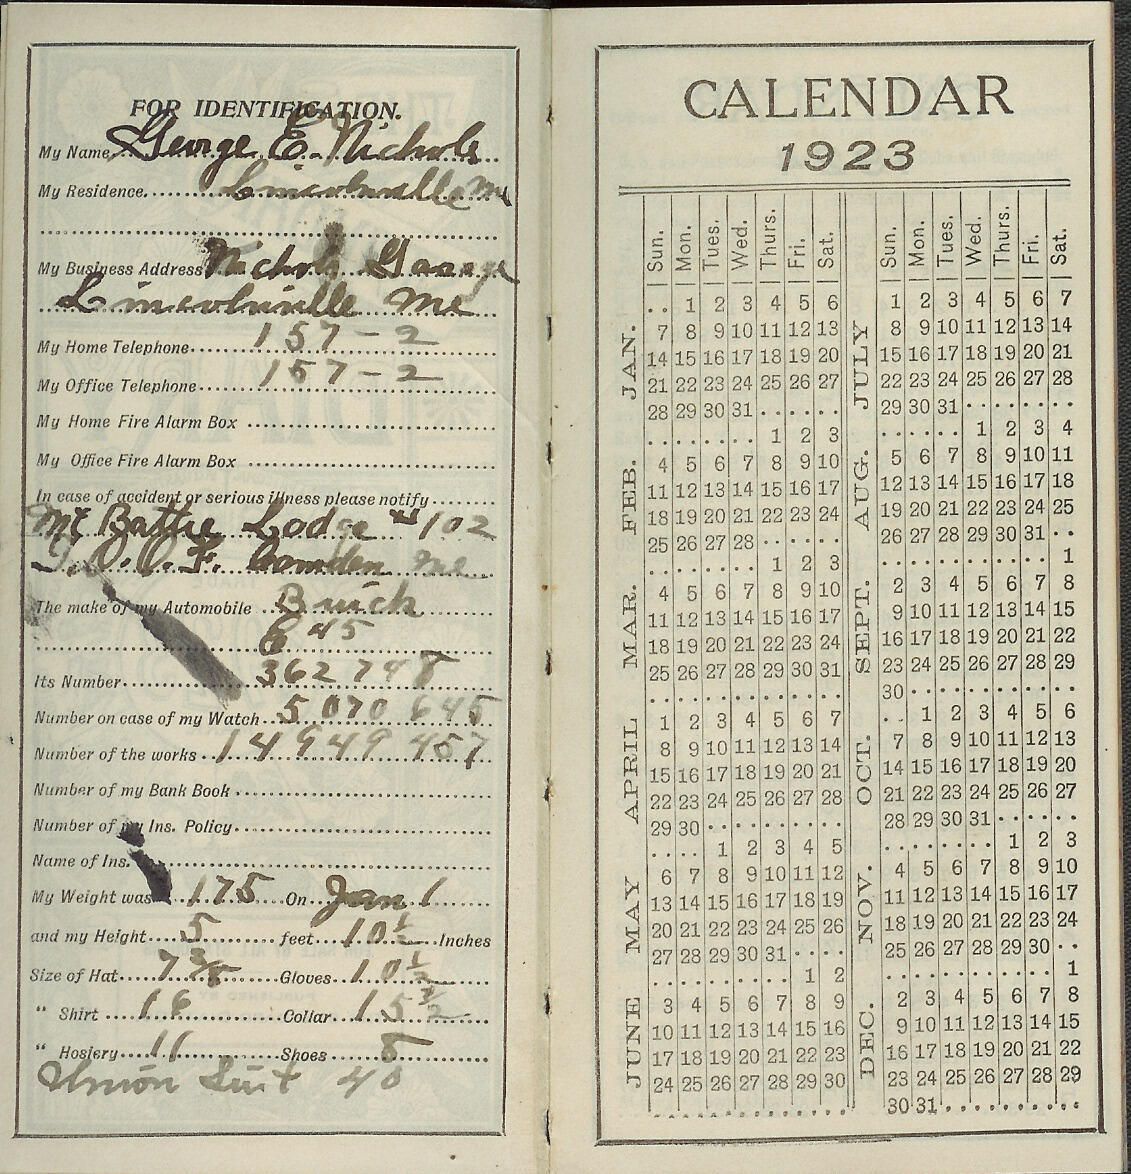 FOR IDENTIFICATION.
My Name George E. Nichols
My Residence Lincolnville Me
My Business Address Nichols George
Lincolnville Me
My Home Telephone 157-2
My Office Telephone 157-2
My Home Fire Alarm Box
My Office Fire Alarm Box
In case of accident or serious illness please notify
Mt Battie Lodge # 102
I.O.O.F. Camden Me
The make of my Automobile Buick
6 45
Its Number 362748
Number on case of my Watch 5070645
Number of the works 14949457
Number of my Bank Book
Number of my Ins. Policy
Name of Ins.
My Weight was 175 On Jan 1
and my Height 5 feet 10 1/2 Inches
Size of Hat 7 3/8 Gloves 10 1/2
" Shirt 16 Collar 15 1/2
" Hosiery 11 Shoes 8
Union Suit 40
CALENDAR
1923
Sun. Mon. Tues. Wed. Thurs. Fri. Sat.
JAN.
.. 1 2 3 4 5 6
7 8 9 10 11 12 13
14 15 16 17 18 19 20
21 22 23 24 25 26 27
28 29 30 31
FEB.
1 2 3
4 5 6 7 8 9 10
11 12 13 14 15 16 17
18 19 20 21 22 23 24
25 26 27 28
MAR.
1 2 3
4 5 6 7 8 9 10
11 12 13 14 15 16 17
18 19 20 21 22 23 24
25 26 27 28 29 30 31
APRIL
1 2 3 4 5 6 7
8 9 10 11 12 13 14
15 16 17 18 19 20 21
22 23 24 25 26 27 28
29 30
MAY
1 2 3 4 5
6 7 8 9 10 11 12
13 14 15 16 17 18 19
20 21 22 23 24 25 26
27 28 29 30 31
JUNE
1 2
3 4 5 6 7 8 9
10 11 12 13 14 15 16
17 18 19 20 21 22 23
24 25 26 27 28 29 30
Sun. Mon. Tues. Wed. Thurs. Fri. Sat.
JULY
1 2 3 4 5 6 7
8 9 10 11 12 13 14
15 16 17 18 19 20 21
22 23 24 25 26 27 28
29 30 31
AUG.
1 2 3 4
5 6 7 8 9 10 11
12 13 14 15 16 17 18
19 20 21 22 23 24 25
26 27 28 29 30 31
SEPT.
1
2 3 4 5 6 7 8
9 10 11 12 13 14 15
16 17 18 19 20 21 22
23 24 25 26 27 28 29
30
OCT.
1 2 3 4 5 6
7 8 9 10 11 12 13
14 15 16 17 18 19 20
21 22 23 24 25 26 27
28 29 30 31
NOV.
1 2 3
4 5 6 7 8 9 10
11 12 13 14 15 16 17
18 19 20 21 22 23 24
25 26 27 28 29 30
DEC.
1
2 3 4 5 6 7 8
9 10 11 12 13 14 15
16 17 18 19 20 21 22
23 24 25 26 27 28 29
30 31